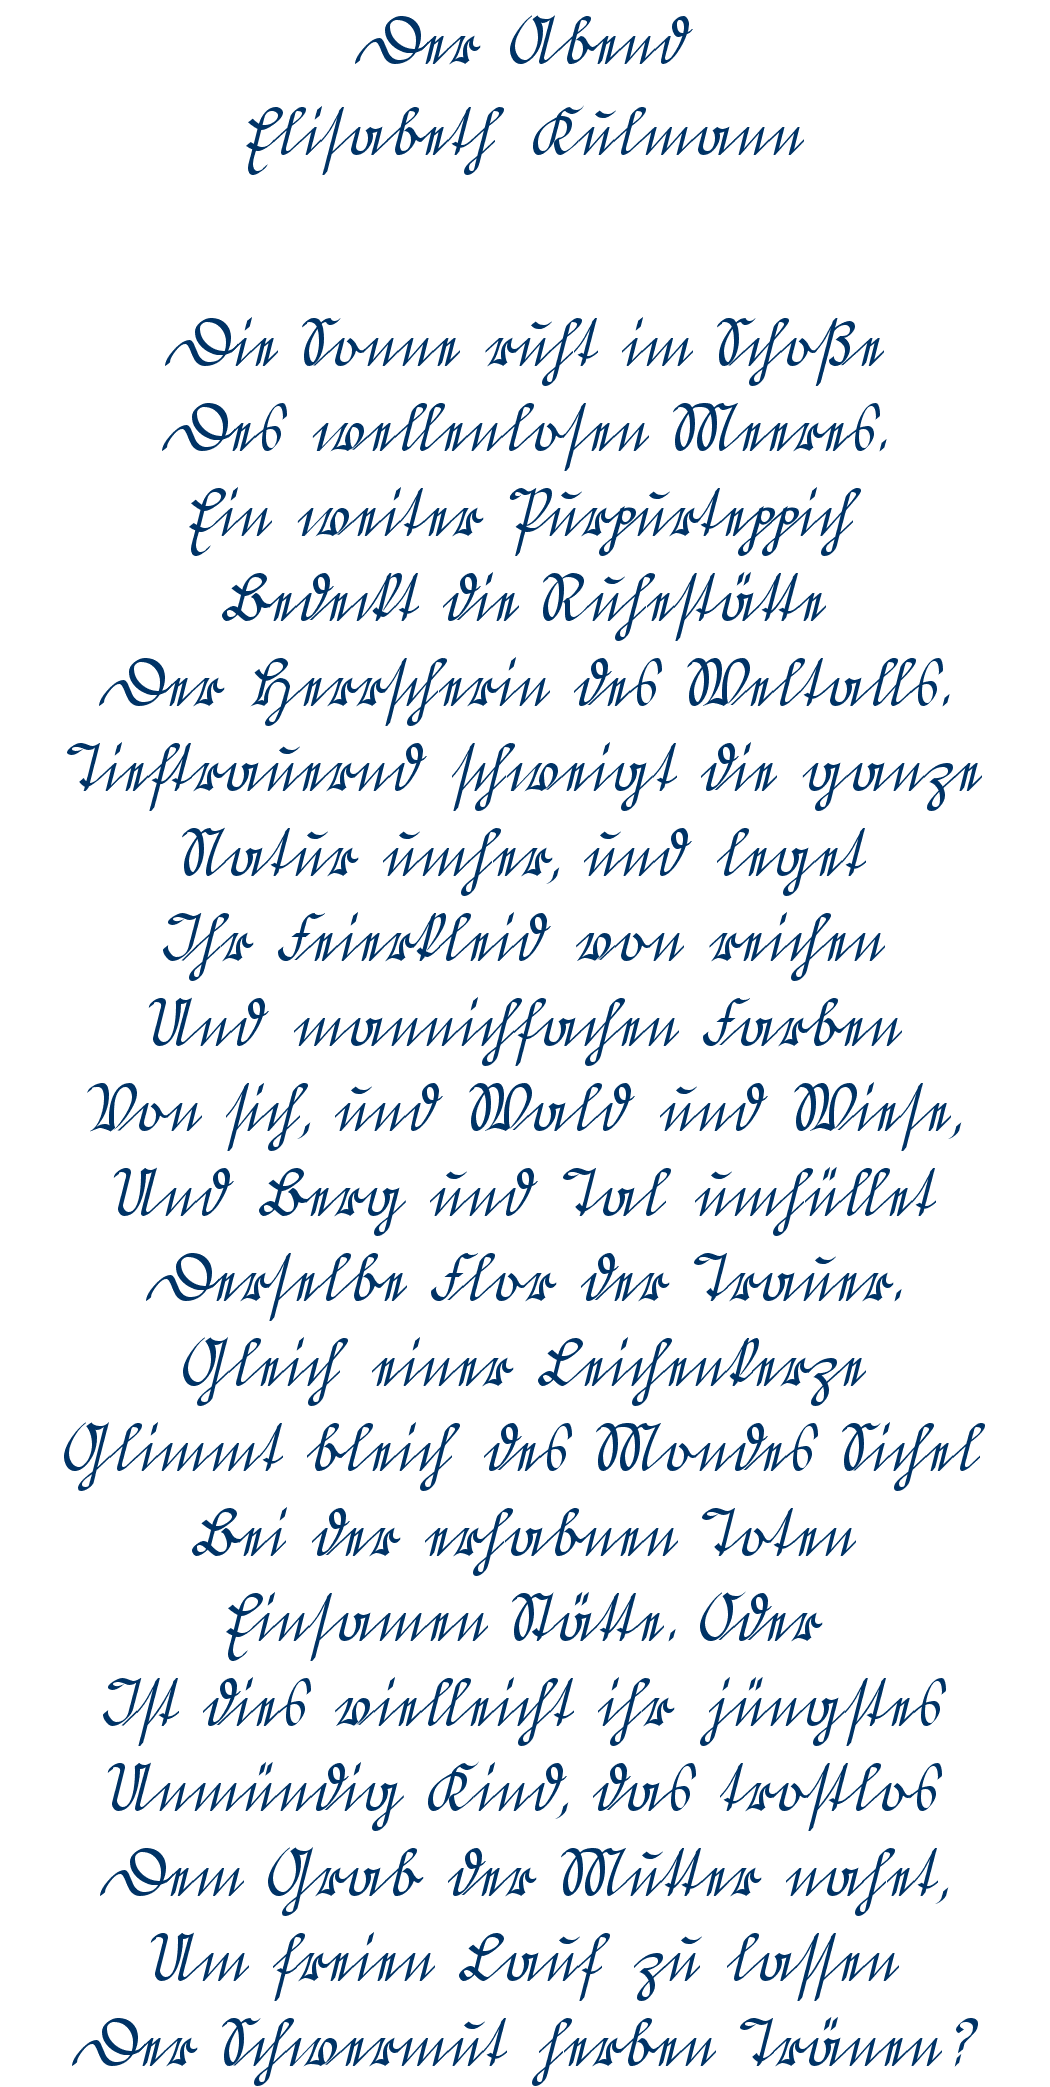 Der Abend
Elisabeth Kulmann
Die Sonne ruht im Schoße
Des wellenlosen Meeres.
Ein weiter Purpurteppich
Bedeckt die Ruhestätte
Der Herrscherin des Weltalls.
Tieftrauernd schweigt die ganze
Natur umher, und leget
Ihr Feierkleid von reichen
Und mannichfachen Farben
Von sich, und Wald und Wiese,
Und Berg und Tal umhüllet
Derselbe Flor der Trauer.
Gleich einer Leichenkerze
Glimmt bleich des Mondes Sichel
Bei der erhabnen Toten
Einsamen Stätte. Oder
Ist dies vielleicht ihr jüngstes
Unmündig Kind, das trostlos
Dem Grab der Mutter nahet,
Um freien Lauf zu lassen
Der Schwermut herben Tränen?